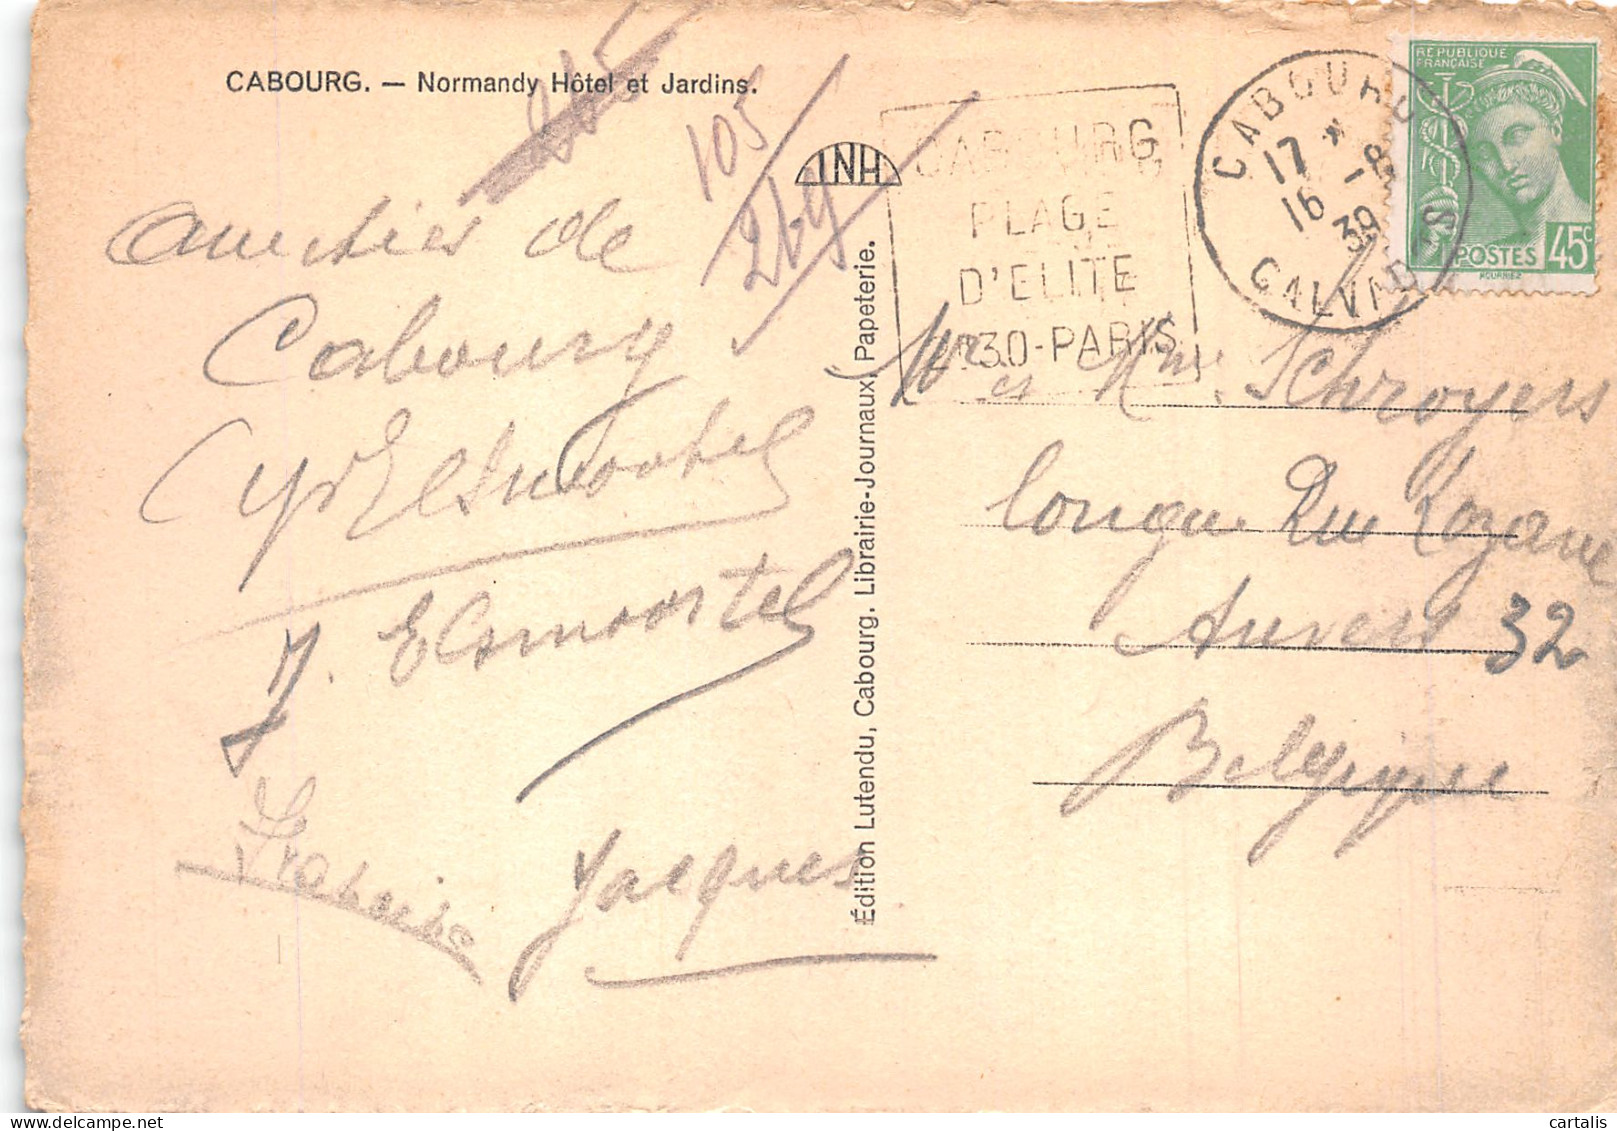 CABOURG. — Normandy Hôtel et Jardins.
105
269
INH
CABOURG
PLAGE
D'ELITE
2H30-PARIS
CABOURG
17 * -8
16 39
CALVADOS
REPUBLIQUE
FRANÇAISE
POSTES 45c
Amitiés de
Cabourg
Elsmoortel
J. Elsmoortel
Jacques
Édition Lutendu, Cabourg. Librairie-Journaux, Papeterie.
Mr et Mme Schroyers
longue Rue Lozane
Anvers 32
Belgique
cartalis